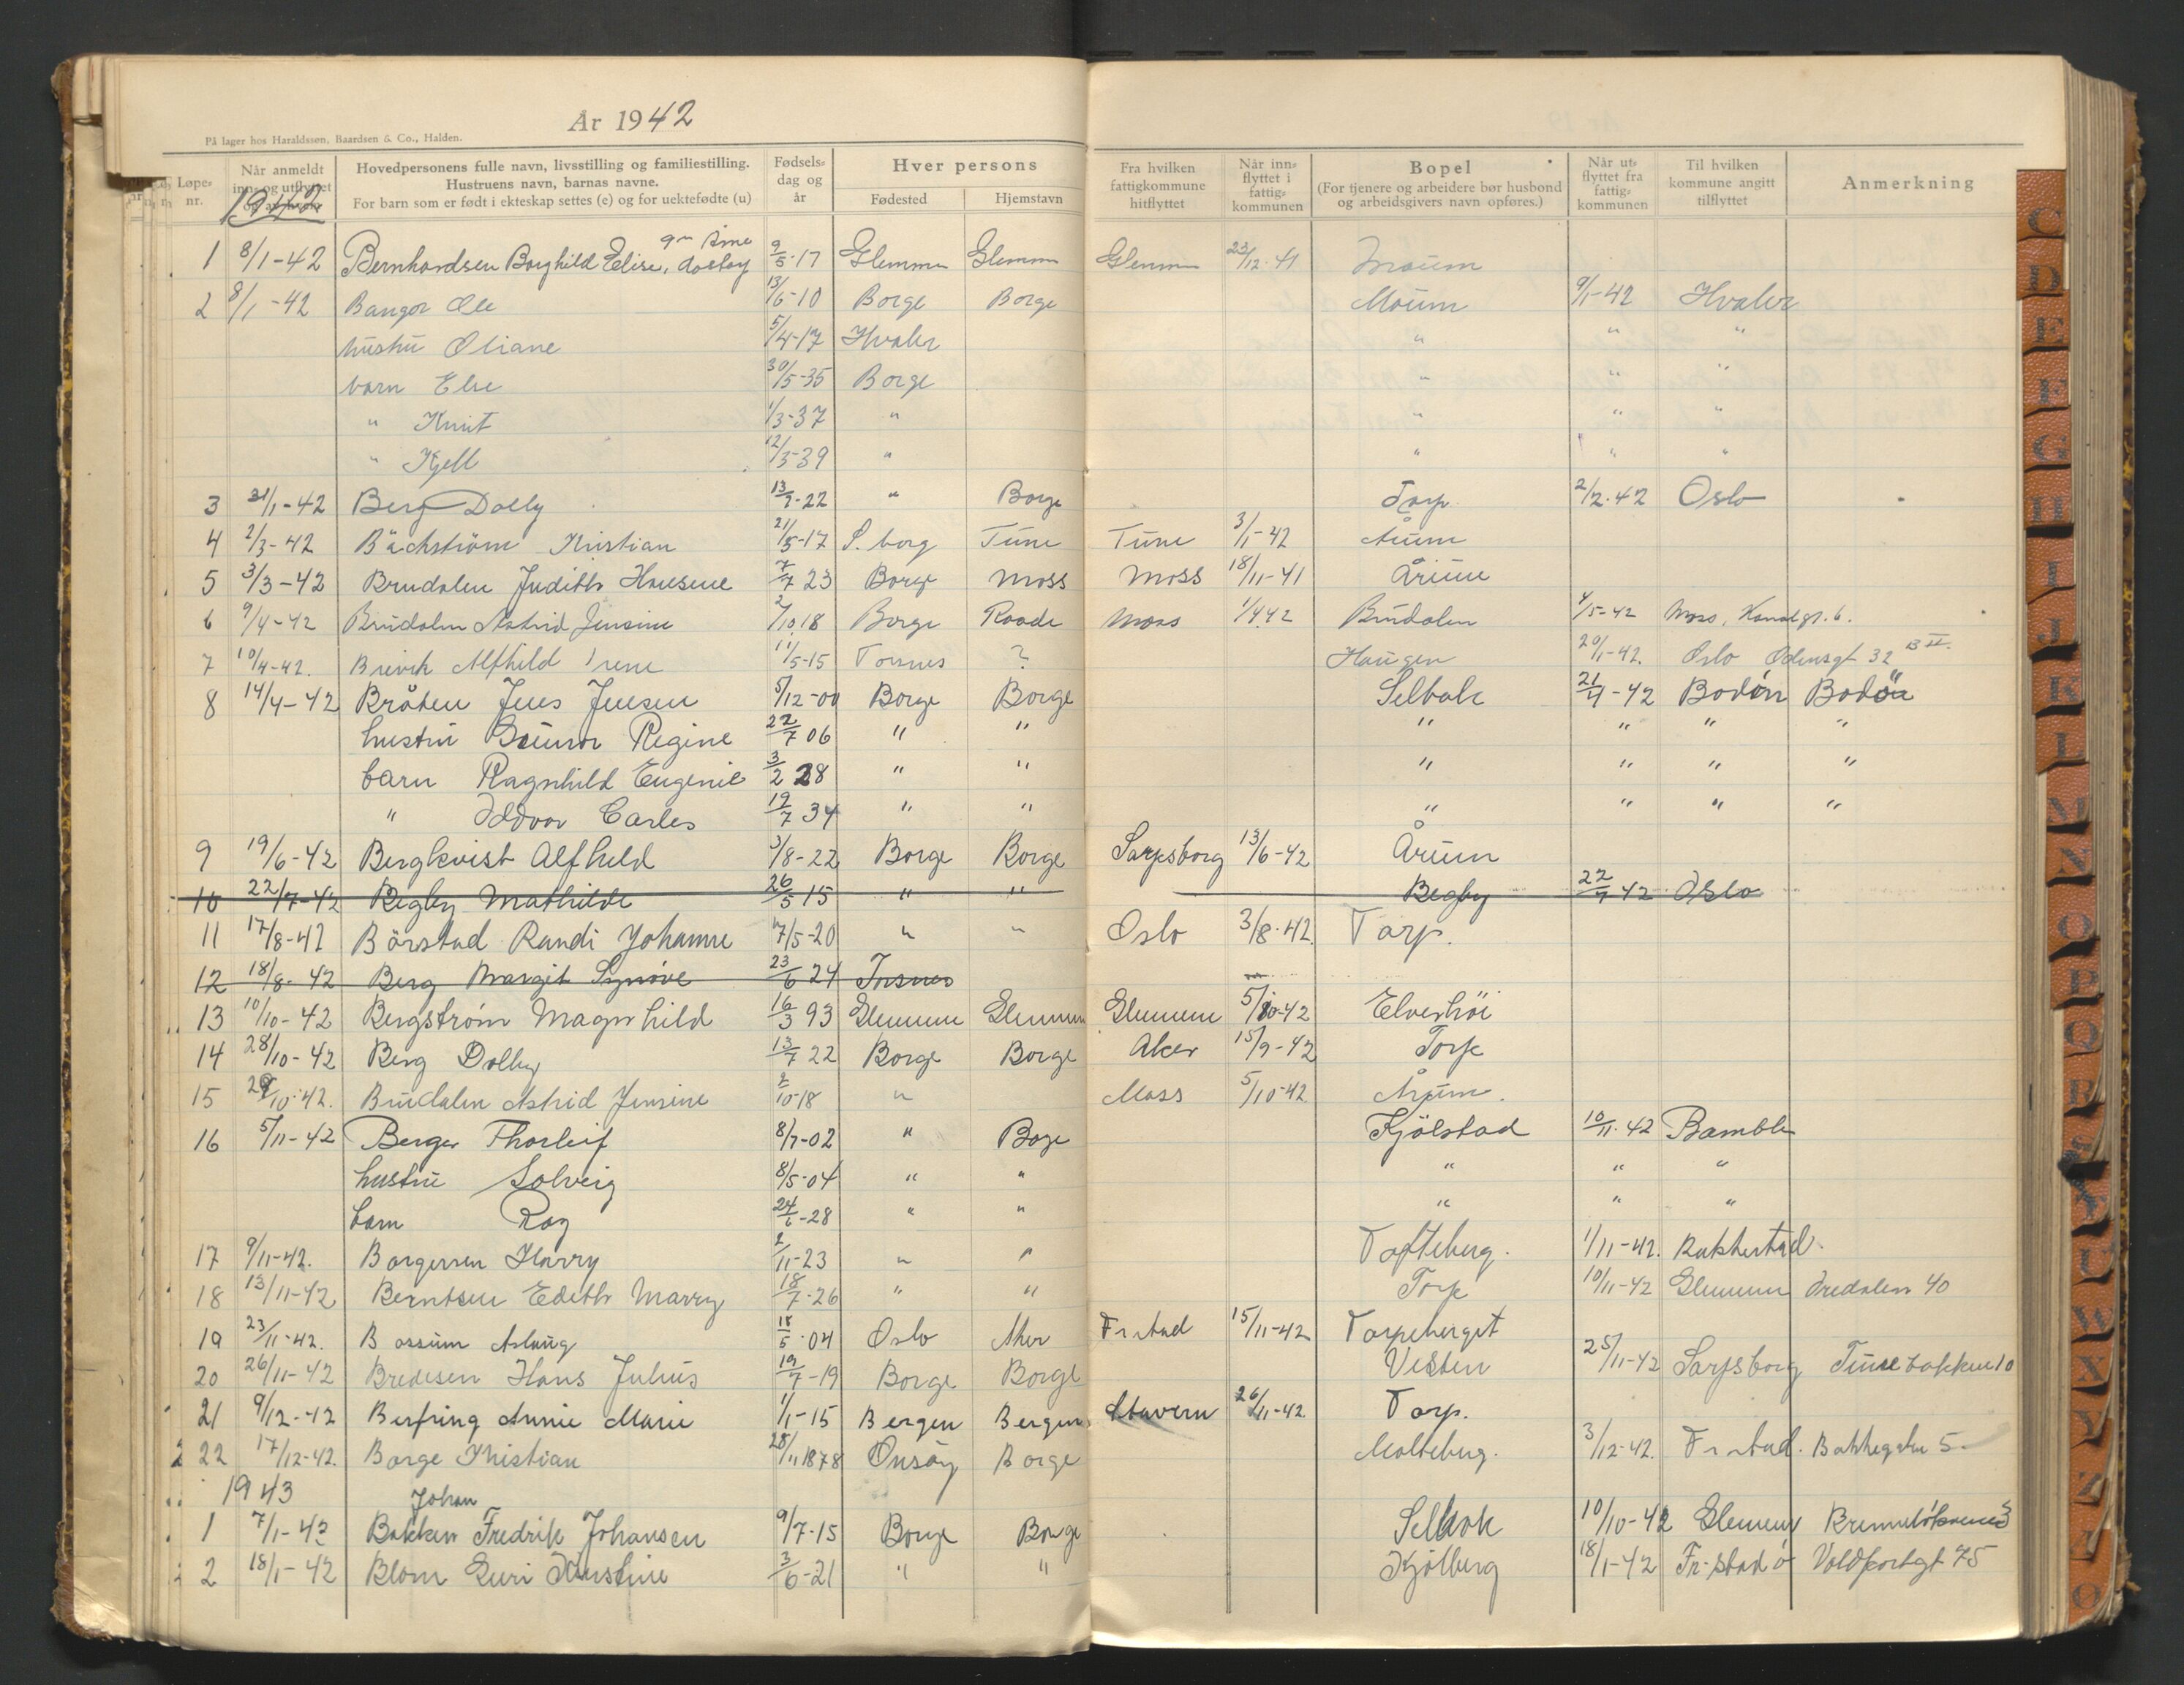 År 1942
På lager hos Haraldssen, Baardsen & Co., Halden.
Løpe-nr. | Når anmeldt inn- og utflyttet | Hovedpersonens fulle navn, livsstilling og familiestilling. Hustruens navn, barnas navne. For barn som er født i ekteskap settes (e) og for uektefødte (u) | Fødsels-dag og år | Hver persons Fødested | Hjemstavn | Fra hvilken fattigkommune hitflyttet | Når inn-flyttet i fattig-kommunen | Bopel (For tjenere og arbeidere bør husbond og arbeidsgivers navn opføres.) | Når ut-flyttet fra fattig-kommunen | Til hvilken kommune angitt tilflyttet | Anmerkning
1942
1 8/1-42 Bernhardsen Borghild Elise, 9/5-17 Glemmen Glemmen Glemmen 23/12-41 Moum
2 8/1-42 Bangor Ole 13/6-10 Borge Borge Moum 9/1-42 Hvaler
hustru Oliane 5/4-17 Hvaler " " "
barn Else 30/5-35 Borge " " "
" Knut 1/3-37 " " " "
" Kjell 12/3-39 " " " "
3 31/1-42 Berg Dolly 13/7-22 " Borge Torp 2/2-42 Oslo
4 2/3-42 Bäckström Kristian 21/5-17 S.borg Tune Tune 3/1-42 Årum
5 3/3-42 Brudalen Judith Hansine 7/7 23 Borge Moss Moss 18/11-41 Årum
6 9/4-42 Brudalen Astrid Jensine 2/10.18 Borge Raade Moss 1/4.42 Brudalen 4/5-42 Moss, Kanalgt. 6.
7 10/4-42. Brevik Alfhild Irene 11/5-15 Torsnes ? Haugen 20/1-42. Oslo Odinsgt 32 B II.
8 14/4-42 Bråten Jens Jensen 5/12-00 Borge Borge Selbak 21/4-42 Bodön Bodöa
hustru Gunvor Regine 22/7 06 " " " " " "
barn Ragnhild Eugenie 3/2 28 " " " " " "
" Oddvar Carles 19/7 34 " " " " " "
9 19/6-42 Bergkvist Alfhild 3/8-22 Borge Borge Sarpsborg 13/6-42 Årum
10 22/7-42 Begby Mathilde 26/5 15 " " Begby 22/7 42 Oslo
11 17/8-42 Börstad Randi Johanne 7/5-20 " " Oslo 3/8-42. Torp.
12 18/8-42 Berg Margit Synöve 23/6 24 Torsnes
13 10/10-42 Bergström Magnhild 16/3 93 Glemmen Glemmen Glemmen 5/10-42 Elverhöi
14 28/10-42 Berg Dolly 13/7 22 Borge Borge Aker 15/9-42 Torp
15 29/10-42. Brudalen Astrid Jensine 2/10-18 " Moss 5/10-42 Årum.
16 5/11-42 Berger Thorleif 8/7-02 " Boge Kjölstad 10/11-42 Bamble
hustru Solveig 8/5-04 " " " " "
barn Roy 24/6-28 " " " " "
17 9/11-42. Borgersen Harry 2/11-23 " " Tofteberg. 1/11-42. Rakkestad.
18 13/11-42 Berntsen Edith Marry 18/7-26 " " Torp 10/11-42 Glemmen Dredalen 40
19 23/11-42. Bossum Aslaug 18/5-04 Oslo Aker Fr.stad 15/11-42 Torpeberget
20 26/11-42 Bredesen Hans Julius 19/7-19 Borge Borge Visten 25/11-42 Sarpsborg Tunebakken 10
21 9/12-42 Berfring Annie Marie 1/1-15 Bergen Bergen Stavern 26/11-42 Torp.
22 17/12-42. Borge Kristian 28/11 1878 Onsöy Borge Molteberg. 3/12-42. Fr.stad. Bakkegaten 5.
1943
1 7/1-43 Bakken Johan Fredrik Johansen 9/7-15 Borge Borge Selbak 10/10-42 Glemmen
2 18/1-42 Blom Guri Kristine 3/6-21 " " Kjölberg 18/1-42 Fr-stad ö Voldportgt 75